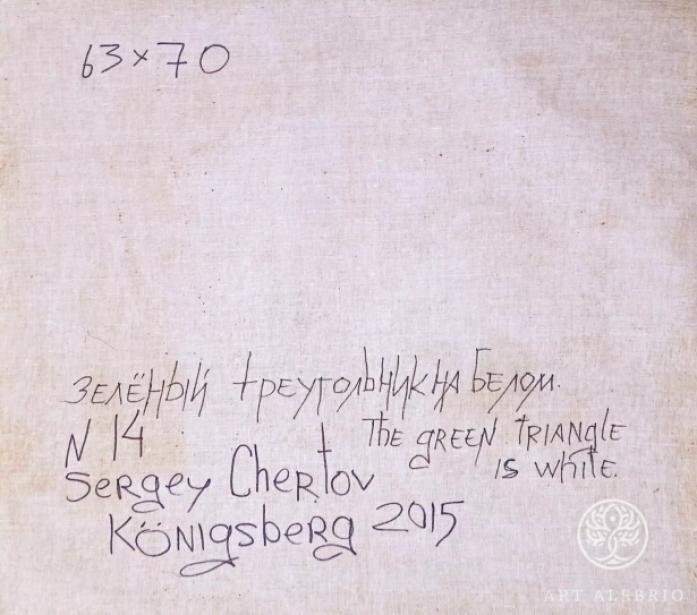 63×70
зелёный треугольник на белом.
N 14
The green triangle
is white.
Sergey Chertov
Königsberg 2015
ART ALEBRIO